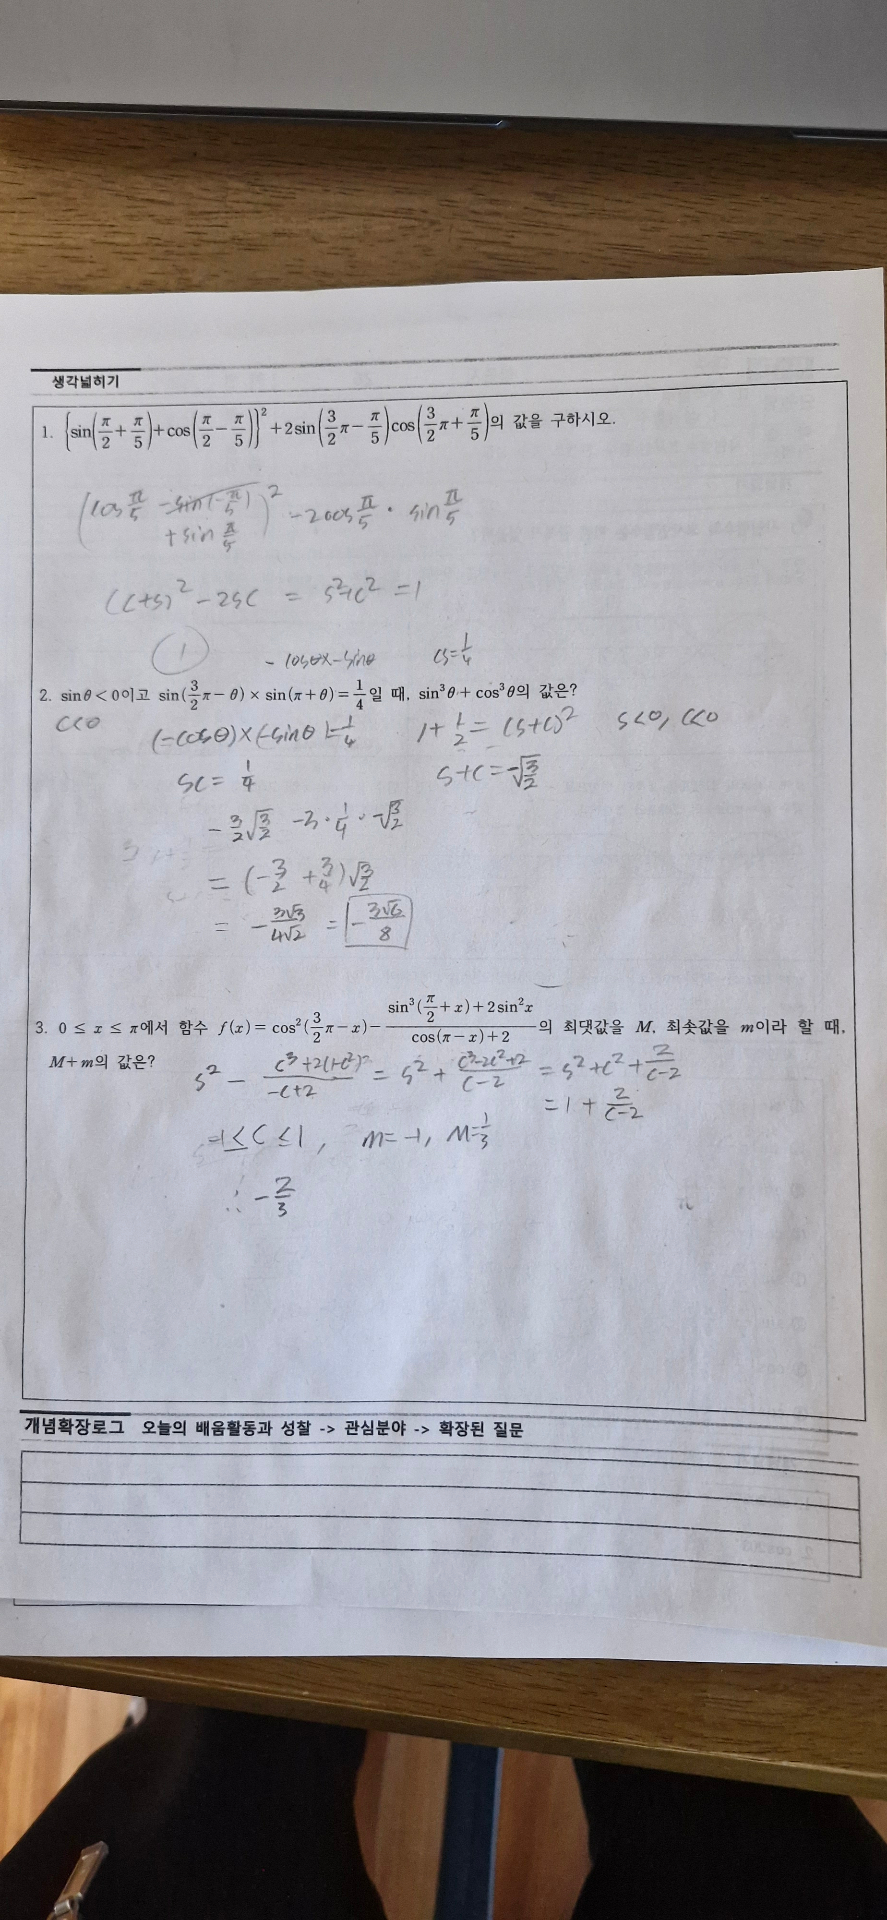 생각넓히기
1. {sin(π/2+π/5)+cos(π/2−π/5)}²+2sin(3/2π−π/5)cos(3/2π+π/5)의 값을 구하시오.
(cos π/5 −sin(−π/5) +sin π/5)² −2cos π/5 · sin π/5
(c+s)² −2sc = s²+c² =1
1
−cosθ×−sinθ cs=1/4
2. sinθ<0이고 sin(3/2π−θ)×sin(π+θ)=1/4일 때, sin³θ+cos³θ의 값은?
c<0 (−cosθ)×(−sinθ)=1/4 1+1/2=(s+c)² s<0, c<0
sc=1/4 s+c=−√3/2
−3/2√3/2 −3·1/4·−√3/2
=(−3/2+3/4)√3/2
=−3√3/4√2 = −3√6/8
3. 0≤x≤π에서 함수 f(x)=cos²(3/2π−x)−(sin³(π/2+x)+2sin²x)/(cos(π−x)+2)의 최댓값을 M, 최솟값을 m이라 할 때,
M+m의 값은?
s²−(c³+2(1−c²))/(−c+2) = s²+(c³−2c²+2)/(c−2) = s²+c²+2/(c−2)
=1+2/(c−2)
−1≤c≤1, m=−1, M=1/3
∴ −2/3
개념확장로그 오늘의 배움활동과 성찰 -> 관심분야 -> 확장된 질문